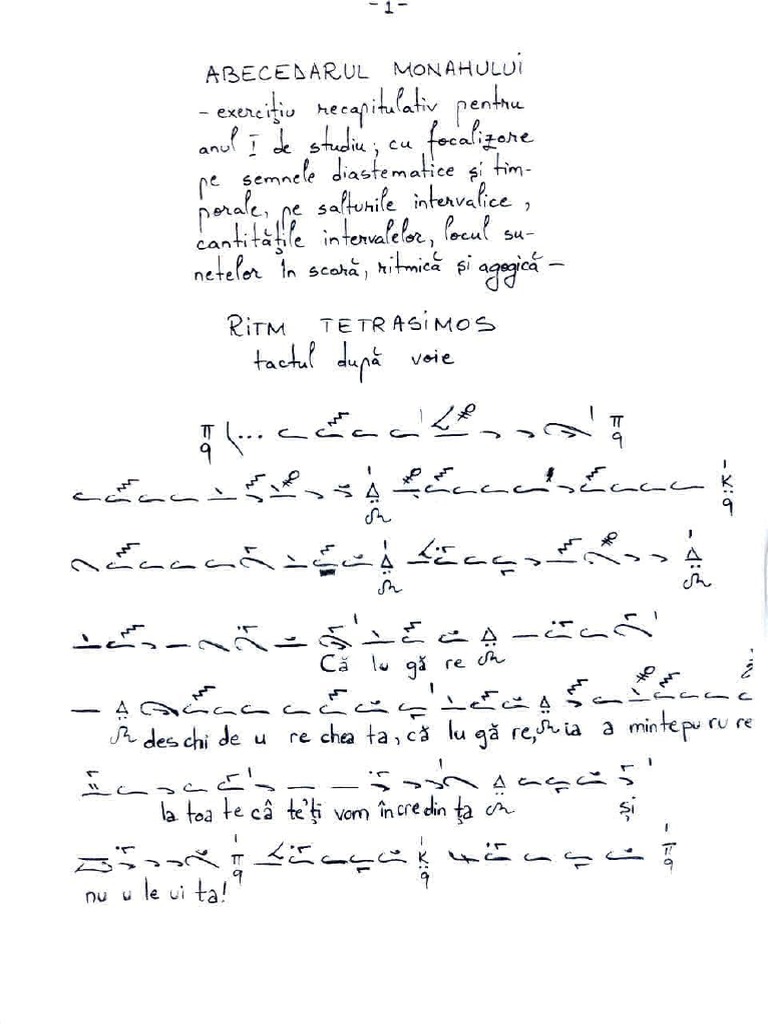 - 1 -
ABECEDARUL MONAHULUI
- exercițiu recapitulativ pentru
anul I de studiu; cu focalizare
pe semnele diastematice și tim-
porale, pe salturile intervalice,
cantitățile intervalelor, locul su-
netelor în scară, ritmică și agogică -
RITM TETRASIMOS
tactul după voie
Că lu gă re
deschi de u re chea ta, că lu gă re, ia a minte pu ru re
la toa te câ te'ți vom încredin ța și
nu u le ui ta!